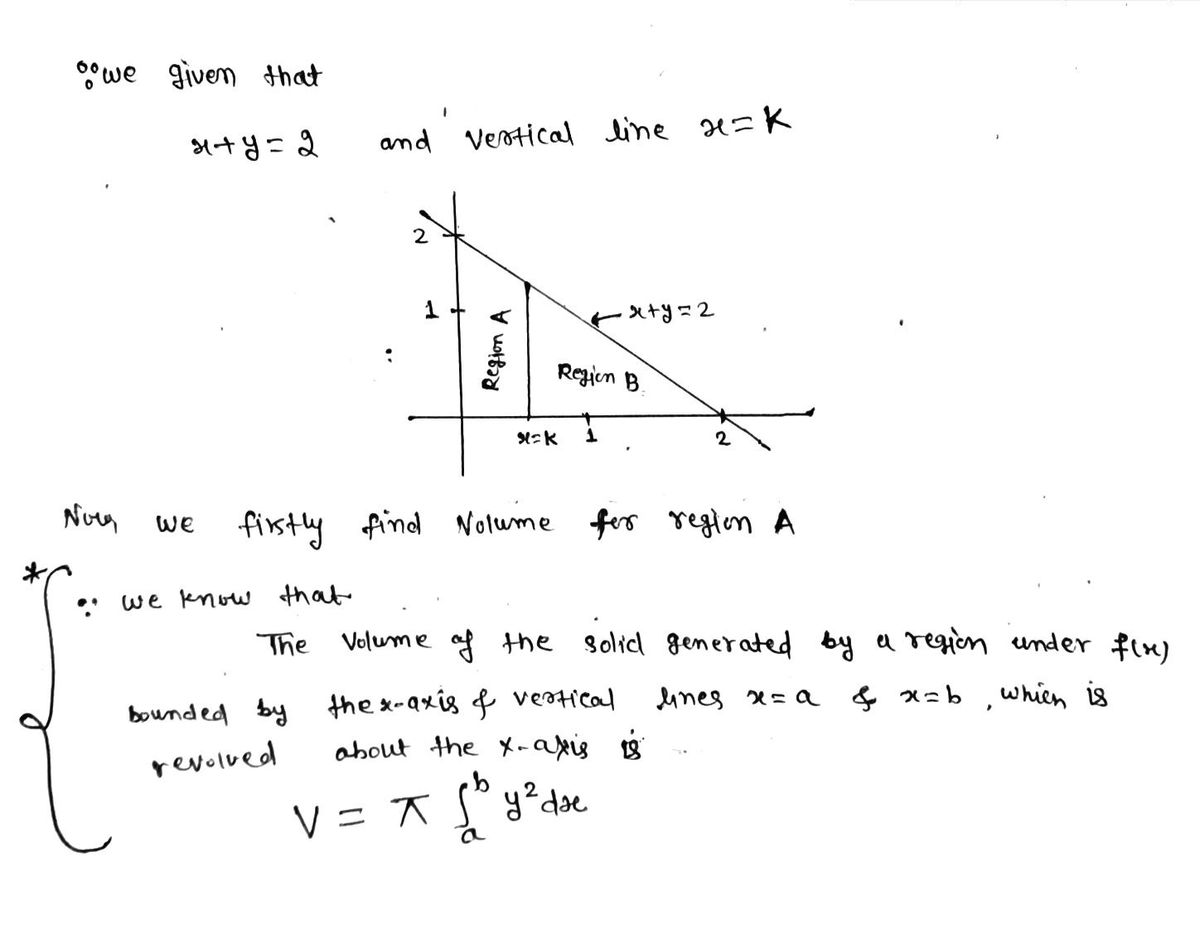 ∵ we given that
x+y=2 and vertical line x=K
2
1
Region A
← x+y=2
Region B
x=K 1 2
Now we firstly find Volume for region A
* ∵ we know that
The Volume of the solid generated by a region under f(x)
bounded by the x-axis & vertical lines x=a & x=b, which is
revolved about the x-axis is
V = π ∫ₐᵇ y² dx